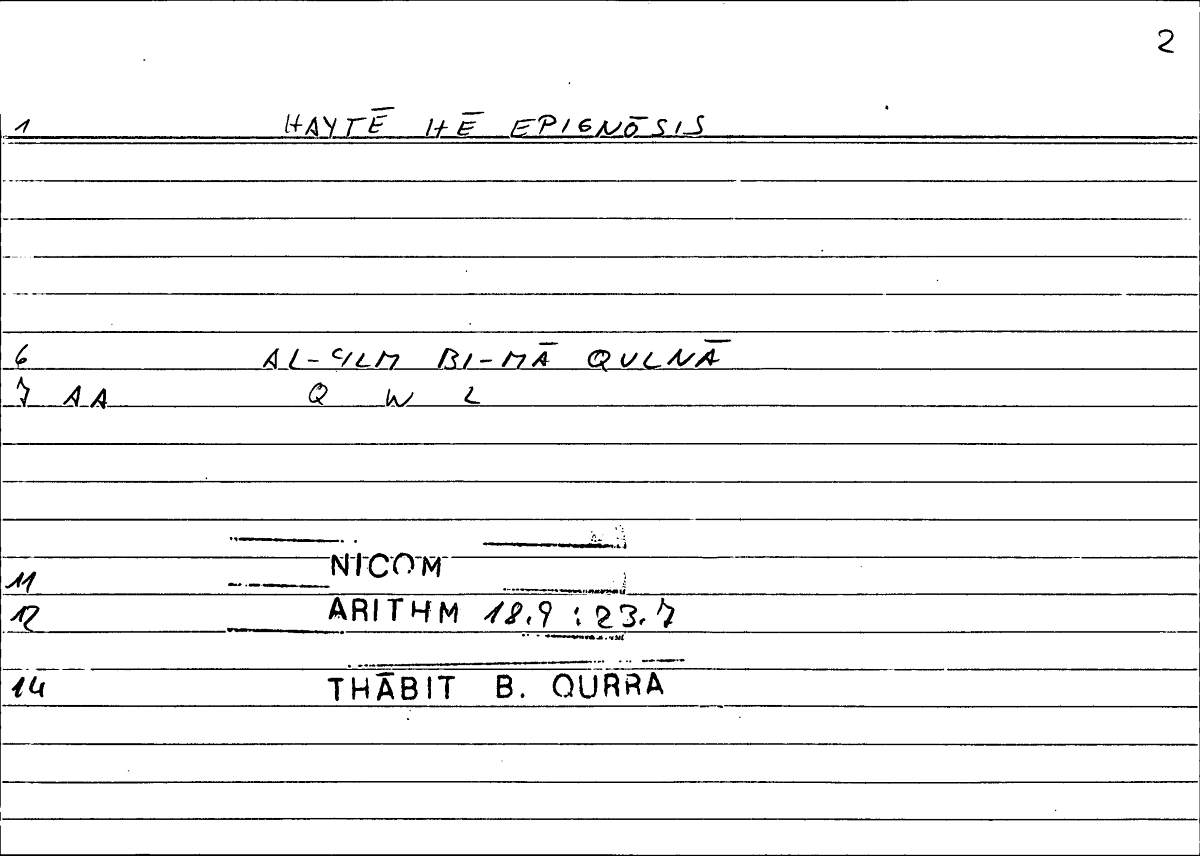 2
1 HAYTĒ HĒ EPIGNŌSIS
6 AL-ʿILM BI-MĀ QULNĀ
7 AA Q W L
11 NICOM
12 ARITHM 18.9 : 23.7
14 THĀBIT B. QURRA